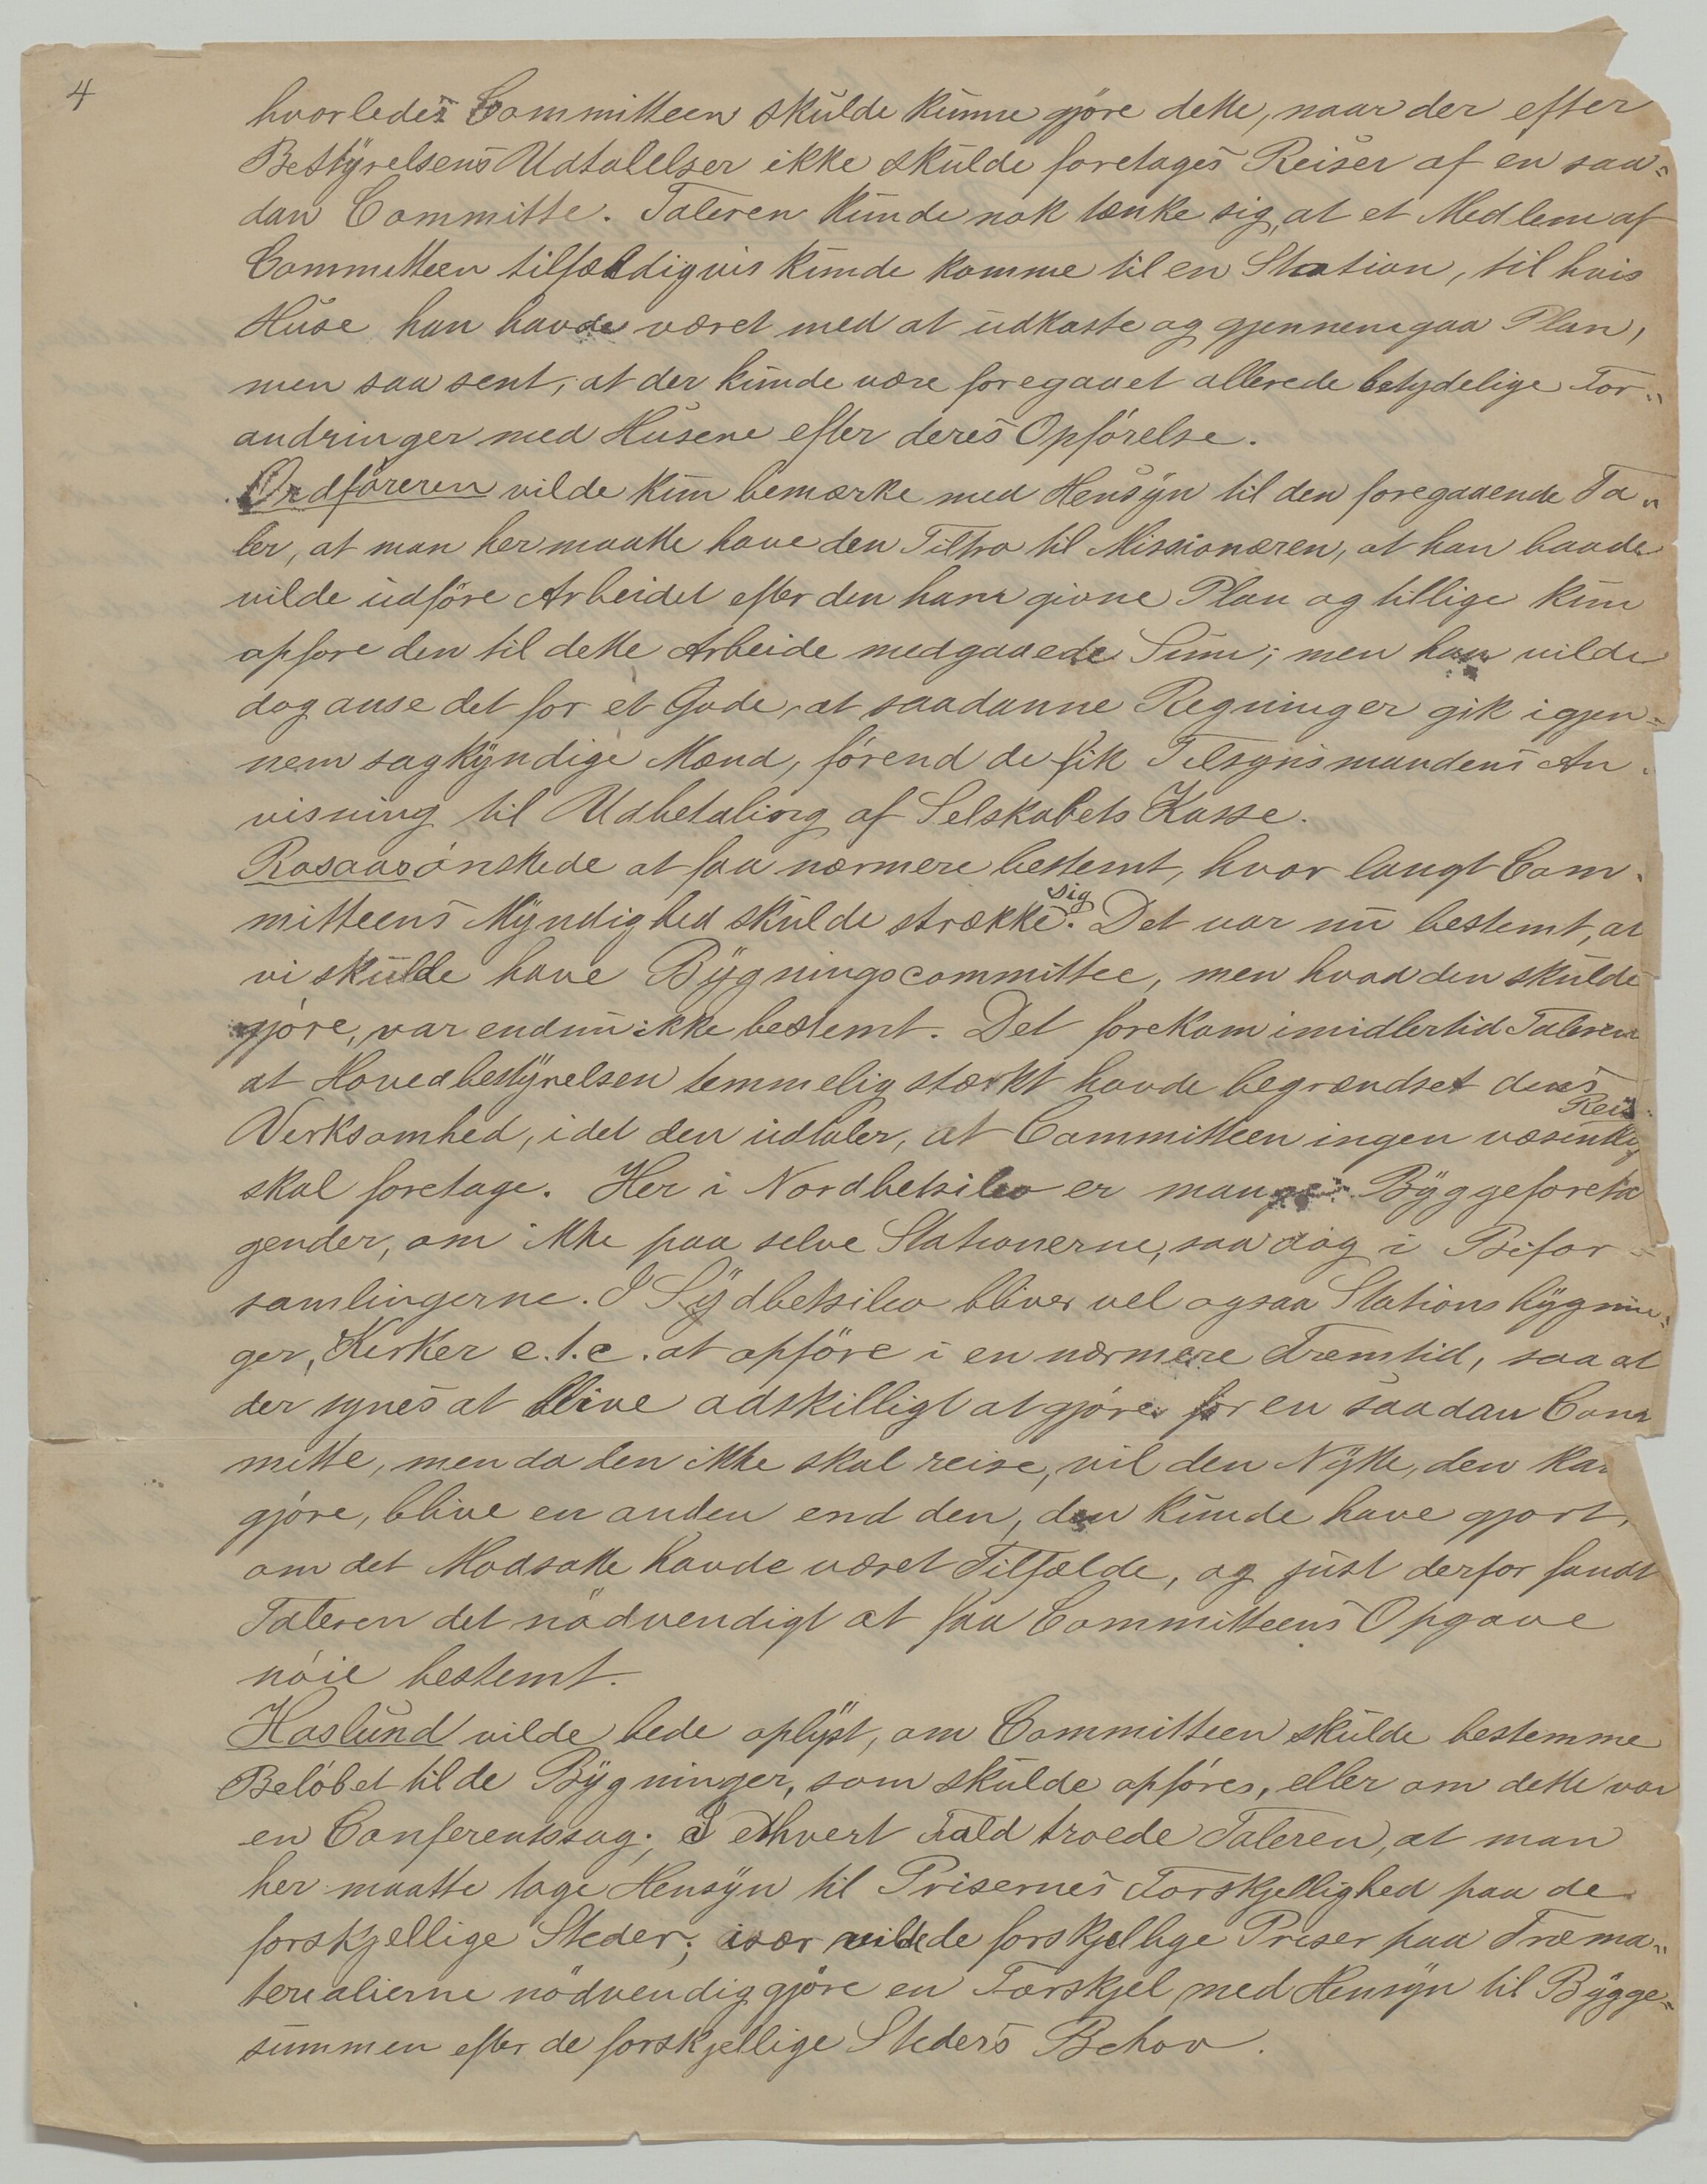 4
hvorledes Committeen skulde kunne gjöre dette, naar der efter
Bestyrelsens Udtalelser ikke skulde foretages Reiser af en saa=
dan Committe. Taleren kunde nok tænke sig, at et Medlem af
Committeen tilfældigvis kunde komme til en Station, til hvis
Huse han havde været med at udkaste og gjennemgaa Plan,
men saa sent, at der kunde være foregaaet allerede betydelige For=
andringer med Husene efter deres Opförelse.
Ordföreren vilde kun bemærke med Hensyn til den foregaaende Ta=
ler, at man her maatte have den Tiltro til Missionæren, at han baade
vilde udföre Arbeidet efter den ham givne Plan og tillige kun
opföre den til dette Arbeide medgaaede Sum; men han vilde
dog anse det for et Gode, at saadanne Regninger gik igjen=
nem sagkyndige Mænd, förend de fik Tilsynsmandens An=
visning til Udbetaling af Selskabets Kasse.
Rosaas önskede at faa nærmere bestemt, hvor langt Com=
mitteens Myndighed skulde strække sig. Det var nu bestemt, at
vi skulde have Bygningscommittee, men hvad den skulde
gjöre, var endnu ikke bestemt. Det forekom imidlertid Taleren
at Hovedbestyrelsen temmelig stærkt havde begrændset dens
Verksomhed, idet den udtaler, at Committeen ingen væsentlig Reis
skal foretage. Her i Nordbetsileo er mange Byggeforeta
gender, om ikke paa selve Stationerne, saa dog i Bifor=
samlingerne. I Sydbetsileo bliver vel ogsaa Stationsbygnin=
ger, Kirker e.t.c. at opföre i en nærmere Fremtid, saa at
der synes at blive adskilligt at gjöre for en saadan Com
mitte, men da den ikke skal reise, vil den Nytte, den kan
gjöre, blive en anden end den, den kunde have gjort,
om det Modsatte havde været Tilfælde, og just derfor fandt
Taleren det nödvendigt at faa Committeens Opgave
nöie bestemt.
Haslund vilde bede oplyst, om Committeen skulde bestemme
Belöbet til de Bygninger, som skulde opföres, eller om dette var
en Conferentssag; i ethvert Fald troede Taleren, at man
her maatte tage Hensyn til Prisernes Forskjellighed paa de
forskjellige Steder; især vilde de forskjellige Priser paa Træma=
terialierne nödvendiggjöre en Forskjel med Hensyn til Bygge=
summen efter de forskjellige Steders Behov.